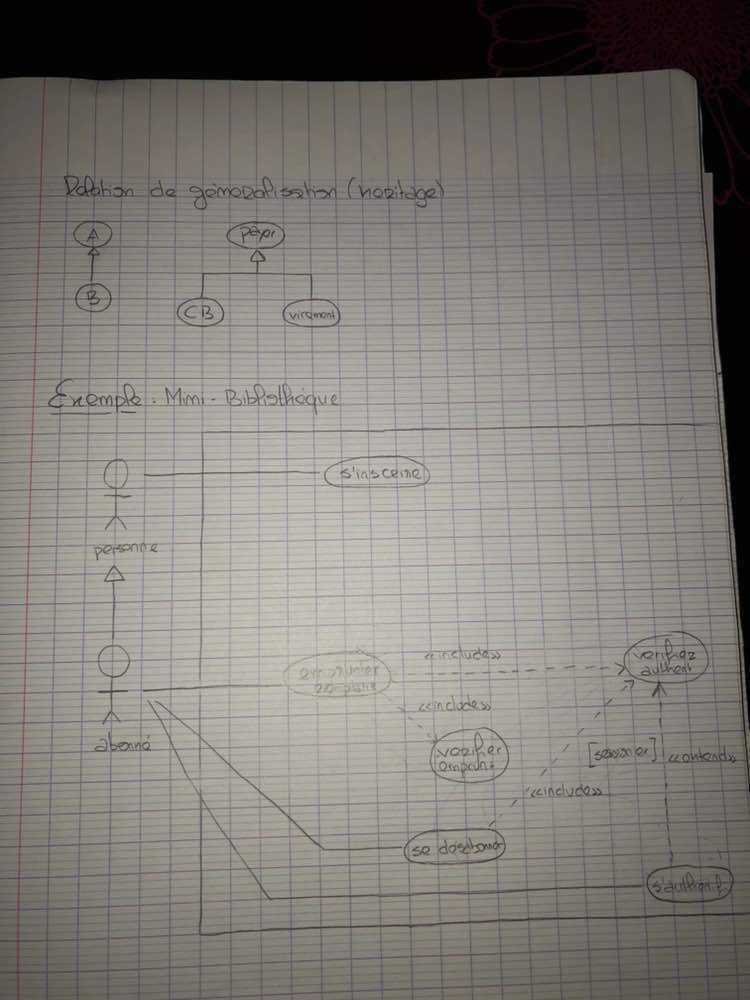 Relation de généralisation (heritage)
A
payer
B
CB
virement
Exemple. Mini-Bibliothèque
s'inscrire
personne
emprunter
exemplaire
<<include>>
verifier
authent
<<include>>
abonné
verifier
emprunt
[session er] <<extend>>
<<include>>
se desabonner
s'authentif.